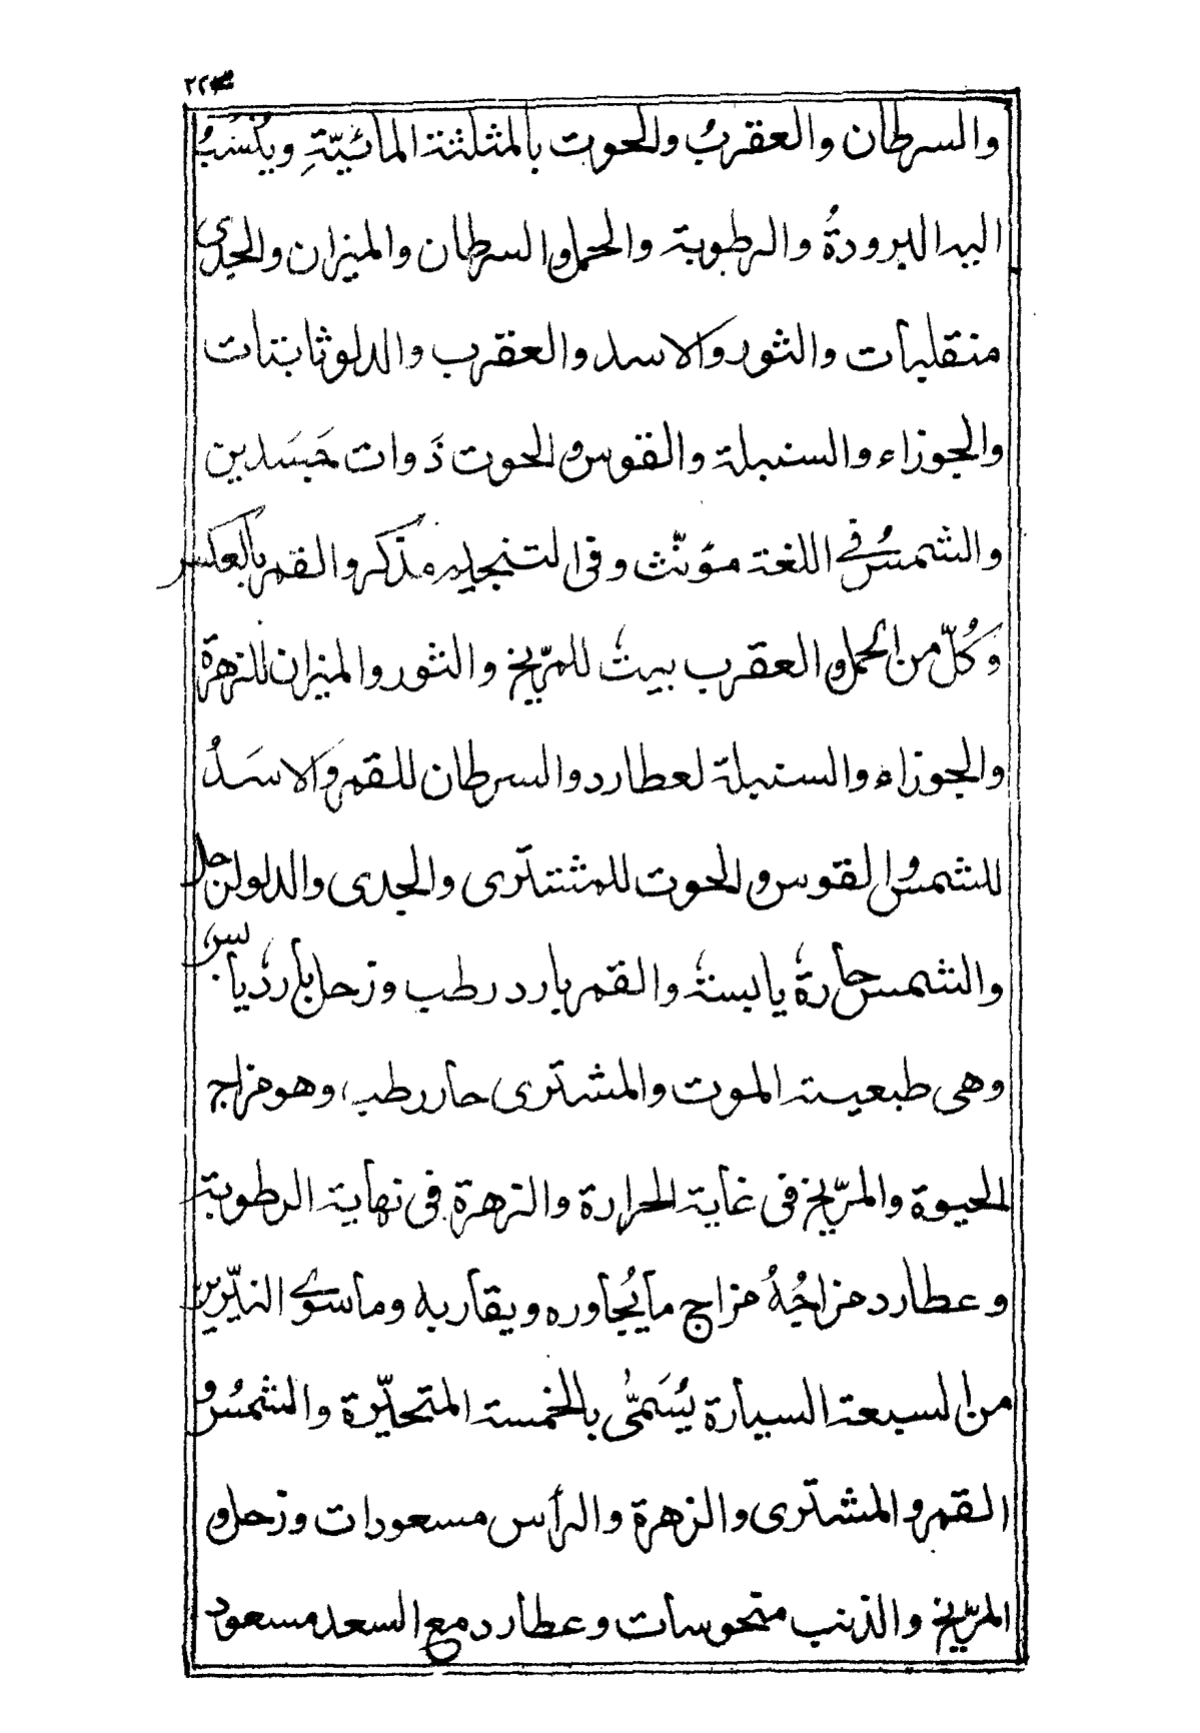 والسرطان والعقربُ والحوت بالمثلثة المائيّةِ ويُنسَبُ
اليه البرودةُ والرطوبة والحمل والسرطان والميزان والجدى
منقلبات والثور والاسد والعقرب والدلو ثابتات
والجوزاء والسنبلة والقوس والحوت ذَوات جَسَدين
والشمسُ فى اللغة مؤنّث وفى التنجيم مذكر والقمر بالعكس
وَكُلّ من الحمل والعقرب بيتٌ للمرّيخ والثور والميزان للزهرة
والجوزاء والسنبلة لعطارد والسرطان للقمر والاسَدُ
للشمس والقوس والحوت للمشترى والجدى والدلو لزحل
والشمس حارةٌ يابسةٌ والقمر بارد رطب وزحل باردٌ يابس
وهى طبعية الموت والمشترى حار رطب، وهو مزاج
الحيوة والمرّيخ فى غاية الحرارة والزهرة فى نهاية الرطوبة
وعطارد مزاجُهُ مزاج ما يُجاوره ويقاربه وما سوى النيّرين
من السبعة السيارة يُسَمّى بالخمسة المتحيّرة والشمسُ و
القمر والمشترى والزهرة والرأس مسعودات وزحل و
المرّيخ والذنب منحوسات وعطارد مع السعد مسعود